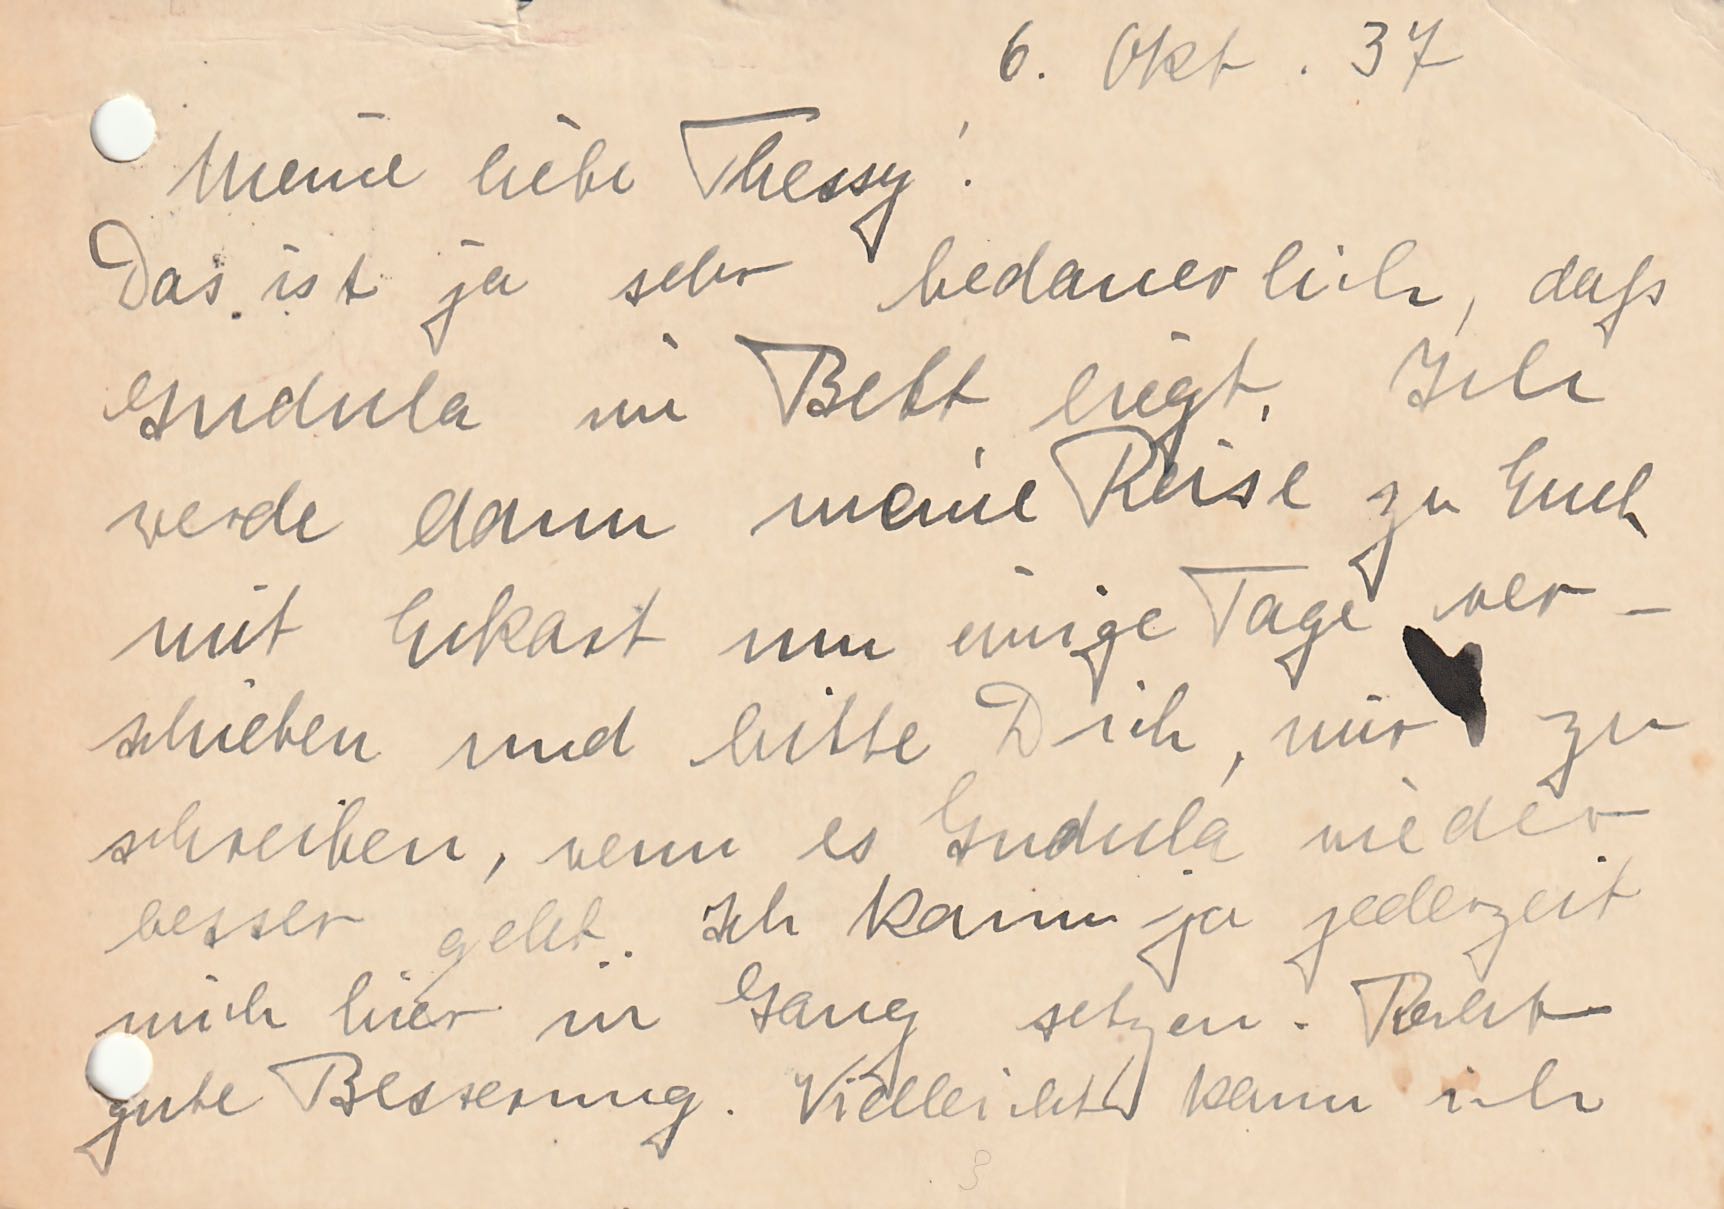 6. Okt. 37
Meine liebe Thessy!
Das ist ja sehr bedauerlich, daß
Gundula im Bett liegt. Ich
werde dann meine Reise zu Euch
mit Eckart um einige Tage ver-
schieben und bitte Dich, mir zu
schreiben, wenn es Gundula wieder
besser geht. Ich kann ja jederzeit
mich hier in Gang setzen. Recht
gute Besserung. Vielleicht kann ich